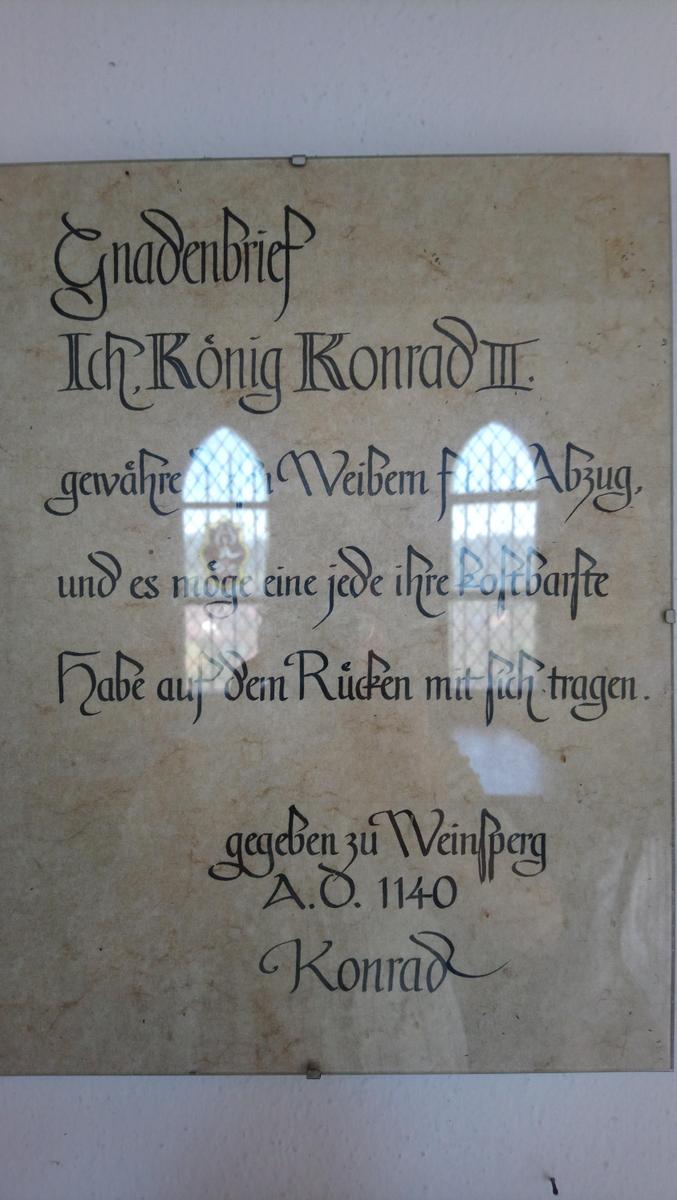 Gnadenbrief
Ich, König Konrad III.
gewähre Weibern Abzug,
und es möge eine jede ihre koſtbarſte
Habe auf dem Rücken mit ſich tragen.
gegeben zu Weinſperg
A.D. 1140
Konrad